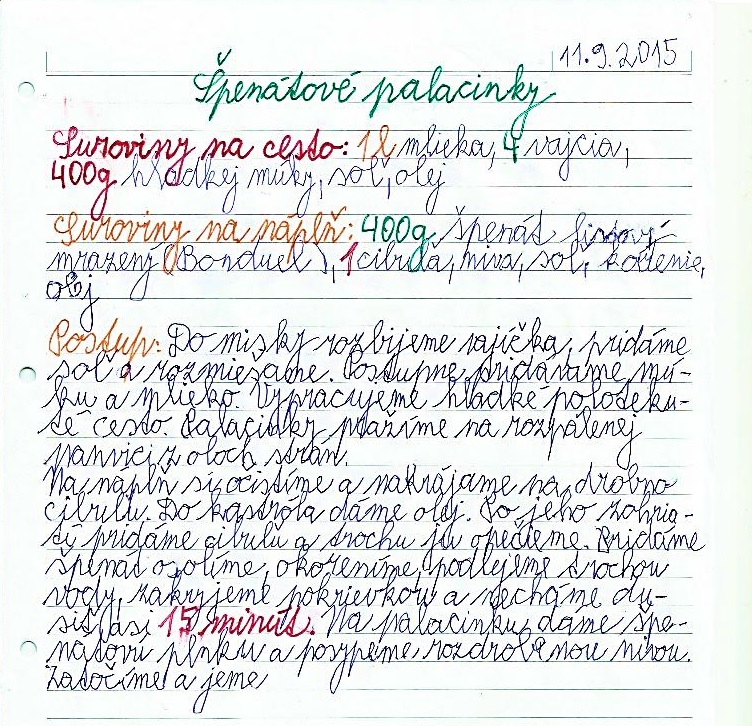 11.9.2015
Špenátové palacinky
Suroviny na cesto: 1l mlieka, 4 vajcia,
400g hladkej múky, soľ, olej
Suroviny na náplň: 400g špenát listový
mrazený (Bonduel), 1 cibuľa, niva, soľ, korenie,
olej
Postup: Do misky rozbijeme vajíčka, pridáme
soľ a rozmiešame. Postupne pridávame mú-
ku a mlieko. Vypracujeme hladké poloteku-
té cesto. Palacinky pražíme na rozpálenej
panvici z oboch strán.
Na náplň si očistíme a nakrájame na drobno
cibuľu. Do kastróla dáme olej. Po jeho zohria-
tí pridáme cibuľu a trochu ju opečieme. Pridáme
špenát osolíme, okoreníme, podlejeme trochou
vody, zakryjeme pokrievkou a necháme du-
siť asi 15 minút. Na palacinku dáme špe-
nátovú plnku a posypeme rozdrobenou nivou.
Zatočíme a jeme